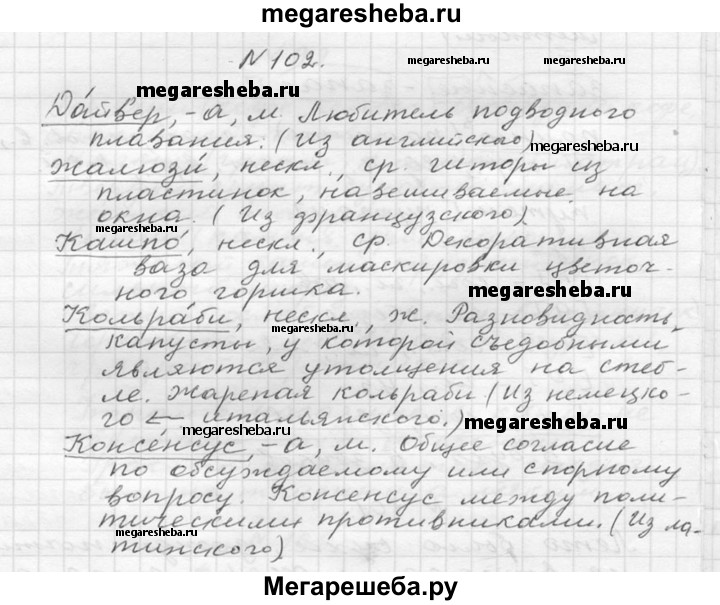 megaresheba.ru
N 102.
megaresheba.ru
megaresheba.ru
megaresheba.ru
Да́йвер, -а, м. Любитель подводного
плавания. (Из английского)
megaresheba.ru
Жалюзи́, нескл., ср. Шторы из
пластинок, навешиваемые на
окна. (Из французского)
megaresheba.ru
megaresheba.ru
Кашпо́, нескл., ср. Декоративная
ваза для маскировки цветоч-
ного горшка.
megaresheba.ru
Кольра́би, нескл., ж. Разновидность
megaresheba.ru
капусты, у которой съедобными
являются утолщения на стеб-
ле. Жареная кольраби (Из немецко-
го ← итальянского.)
megaresheba.ru
megaresheba.ru
Консе́нсус, -а, м. Общее согласие
по обсуждаемому или спорному
вопросу. Консенсус между поли-
тическими противниками. (Из ла-
тинского)
megaresheba.ru
megaresheba.ru
Мегарешеба.ру